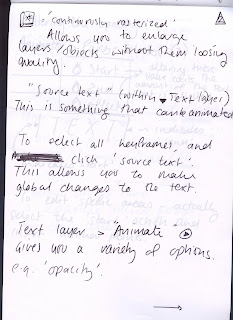 'continuously rasterized'
Allows you to enlarge
layers/objects without them loosing
quality.
"Source text" (within ▾ Text layer)
This is something that can be animated
To select all keyframes and
click 'source text'.
This allows you to make
global changes to the text.
Text layer > "Animate"
Gives you a variety of options.
e.g. 'opacity'.